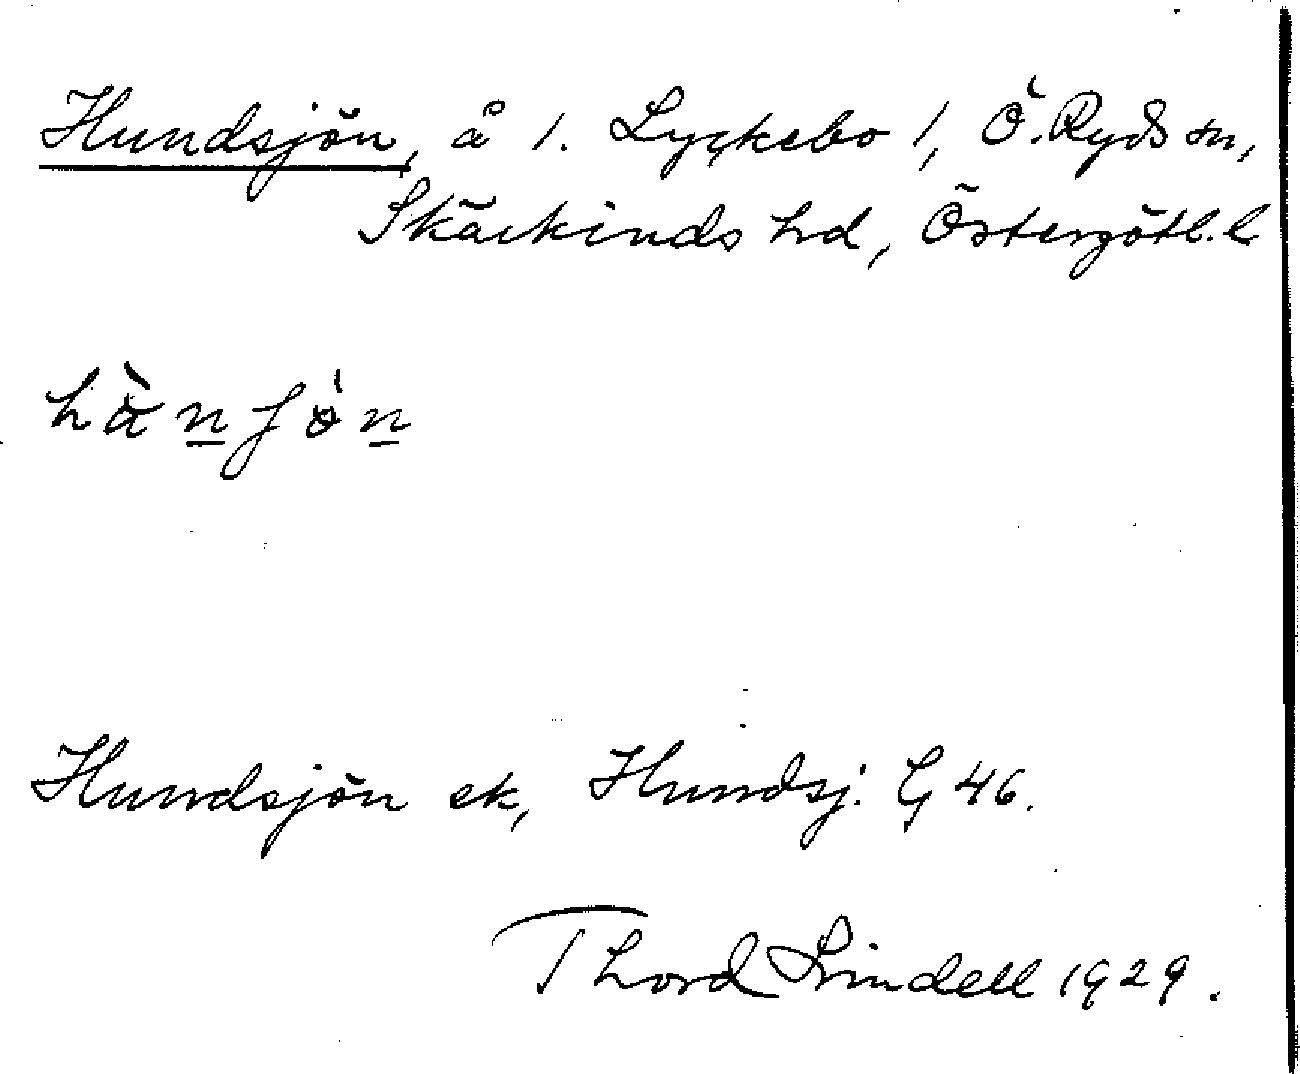 Hundsjön, å 1. Lyckebo 1, Ö. Ryds sn,
Skärkinds hd, Östergötl. l
hànʃö̀n
Hundsjön ek, Hundsj. G 46.
Thord Lindell 1929.